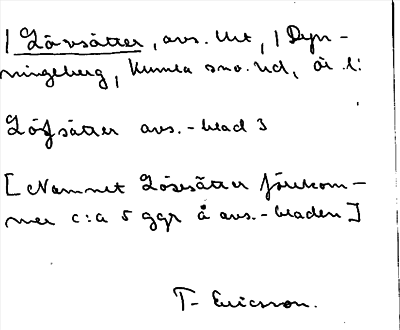 | Lövsätter, avs. Utt, | Dyn-
ningeberg, Kumla sn o. hd, Ör. l:
Löfsätter avs.-blad 3
[Namnet Lövsätter förekom-
mer c:a 5 ggr å avs.-bladen]
T- Ericsson.